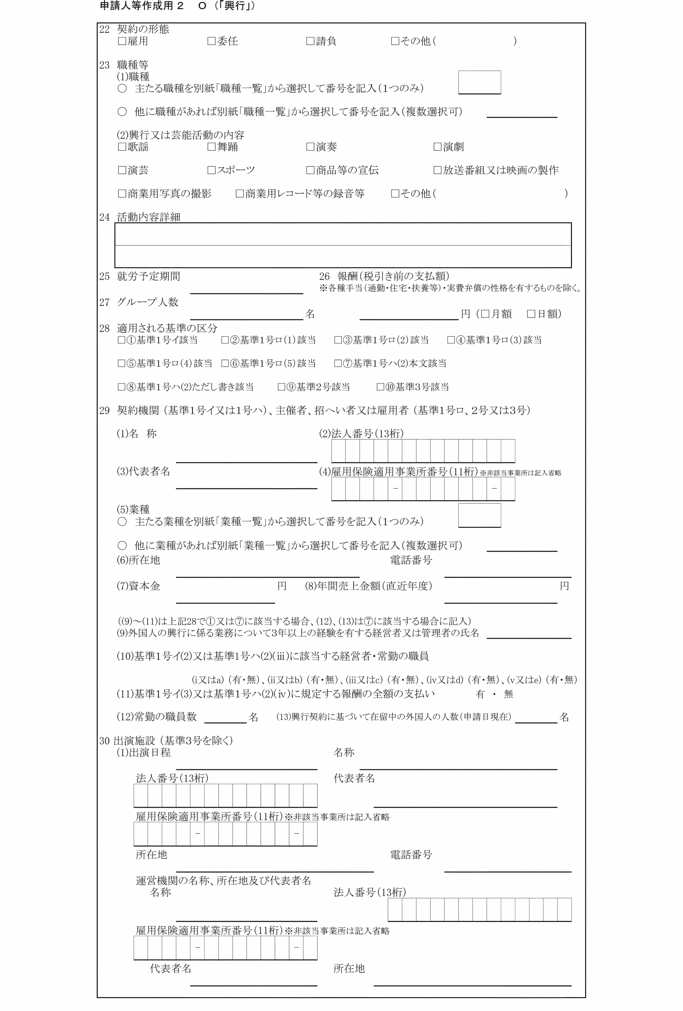 申請人等作成用２　Ｏ（「興行」）
22 契約の形態
□雇用 □委任 □請負 □その他（ ）
23 職種等
(1)職種
○ 主たる職種を別紙「職種一覧」から選択して番号を記入（１つのみ）
○ 他に職種があれば別紙「職種一覧」から選択して番号を記入（複数選択可）
(2)興行又は芸能活動の内容
□歌謡 □舞踊 □演奏 □演劇
□演芸 □スポーツ □商品等の宣伝 □放送番組又は映画の製作
□商業用写真の撮影 □商業用レコード等の録音等 □その他（ ）
24 活動内容詳細
25 就労予定期間 26 報酬（税引き前の支払額）
※各種手当（通勤・住宅・扶養等）・実費弁償の性格を有するものを除く。
27 グループ人数
名 円（□月額 □日額）
28 適用される基準の区分
□①基準１号イ該当 □②基準１号ロ(1)該当 □③基準１号ロ(2)該当 □④基準１号ロ(3)該当
□⑤基準１号ロ(4)該当 □⑥基準１号ロ(5)該当 □⑦基準１号ハ(2)本文該当
□⑧基準１号ハ(2)ただし書き該当 □⑨基準２号該当 □⑩基準３号該当
29 契約機関（基準１号イ又は１号ハ）、主催者、招へい者又は雇用者（基準１号ロ、２号又は３号）
(1)名 称 (2)法人番号（13桁）
(3)代表者名 (4)雇用保険適用事業所番号（11桁）※非該当事業所は記入省略
－ －
(5)業種
○ 主たる業種を別紙「業種一覧」から選択して番号を記入（１つのみ）
○ 他に業種があれば別紙「業種一覧」から選択して番号を記入（複数選択可）
(6)所在地 電話番号
(7)資本金 円 (8)年間売上金額（直近年度） 円
（(9)～(11)は上記28で①又は⑦に該当する場合、(12)、(13)は⑦に該当する場合に記入）
(9)外国人の興行に係る業務について３年以上の経験を有する経営者又は管理者の氏名
(10)基準１号イ(2)又は基準１号ハ(2)(ⅲ)に該当する経営者・常勤の職員
（ⅰ又はa）（有・無）、（ⅱ又はb）（有・無）、（ⅲ又はc）（有・無）、（ⅳ又はd）（有・無）、（ⅴ又はe）（有・無）
(11)基準１号イ(3)又は基準１号ハ(2)(ⅳ)に規定する報酬の全額の支払い 有 ・ 無
(12)常勤の職員数 名 (13)興行契約に基づいて在留中の外国人の人数（申請日現在） 名
30 出演施設（基準３号を除く）
(1)出演日程 名称
法人番号（13桁） 代表者名
雇用保険適用事業所番号（11桁）※非該当事業所は記入省略
－ －
所在地 電話番号
運営機関の名称、所在地及び代表者名
名称 法人番号（13桁）
雇用保険適用事業所番号（11桁）※非該当事業所は記入省略
－ －
代表者名 所在地